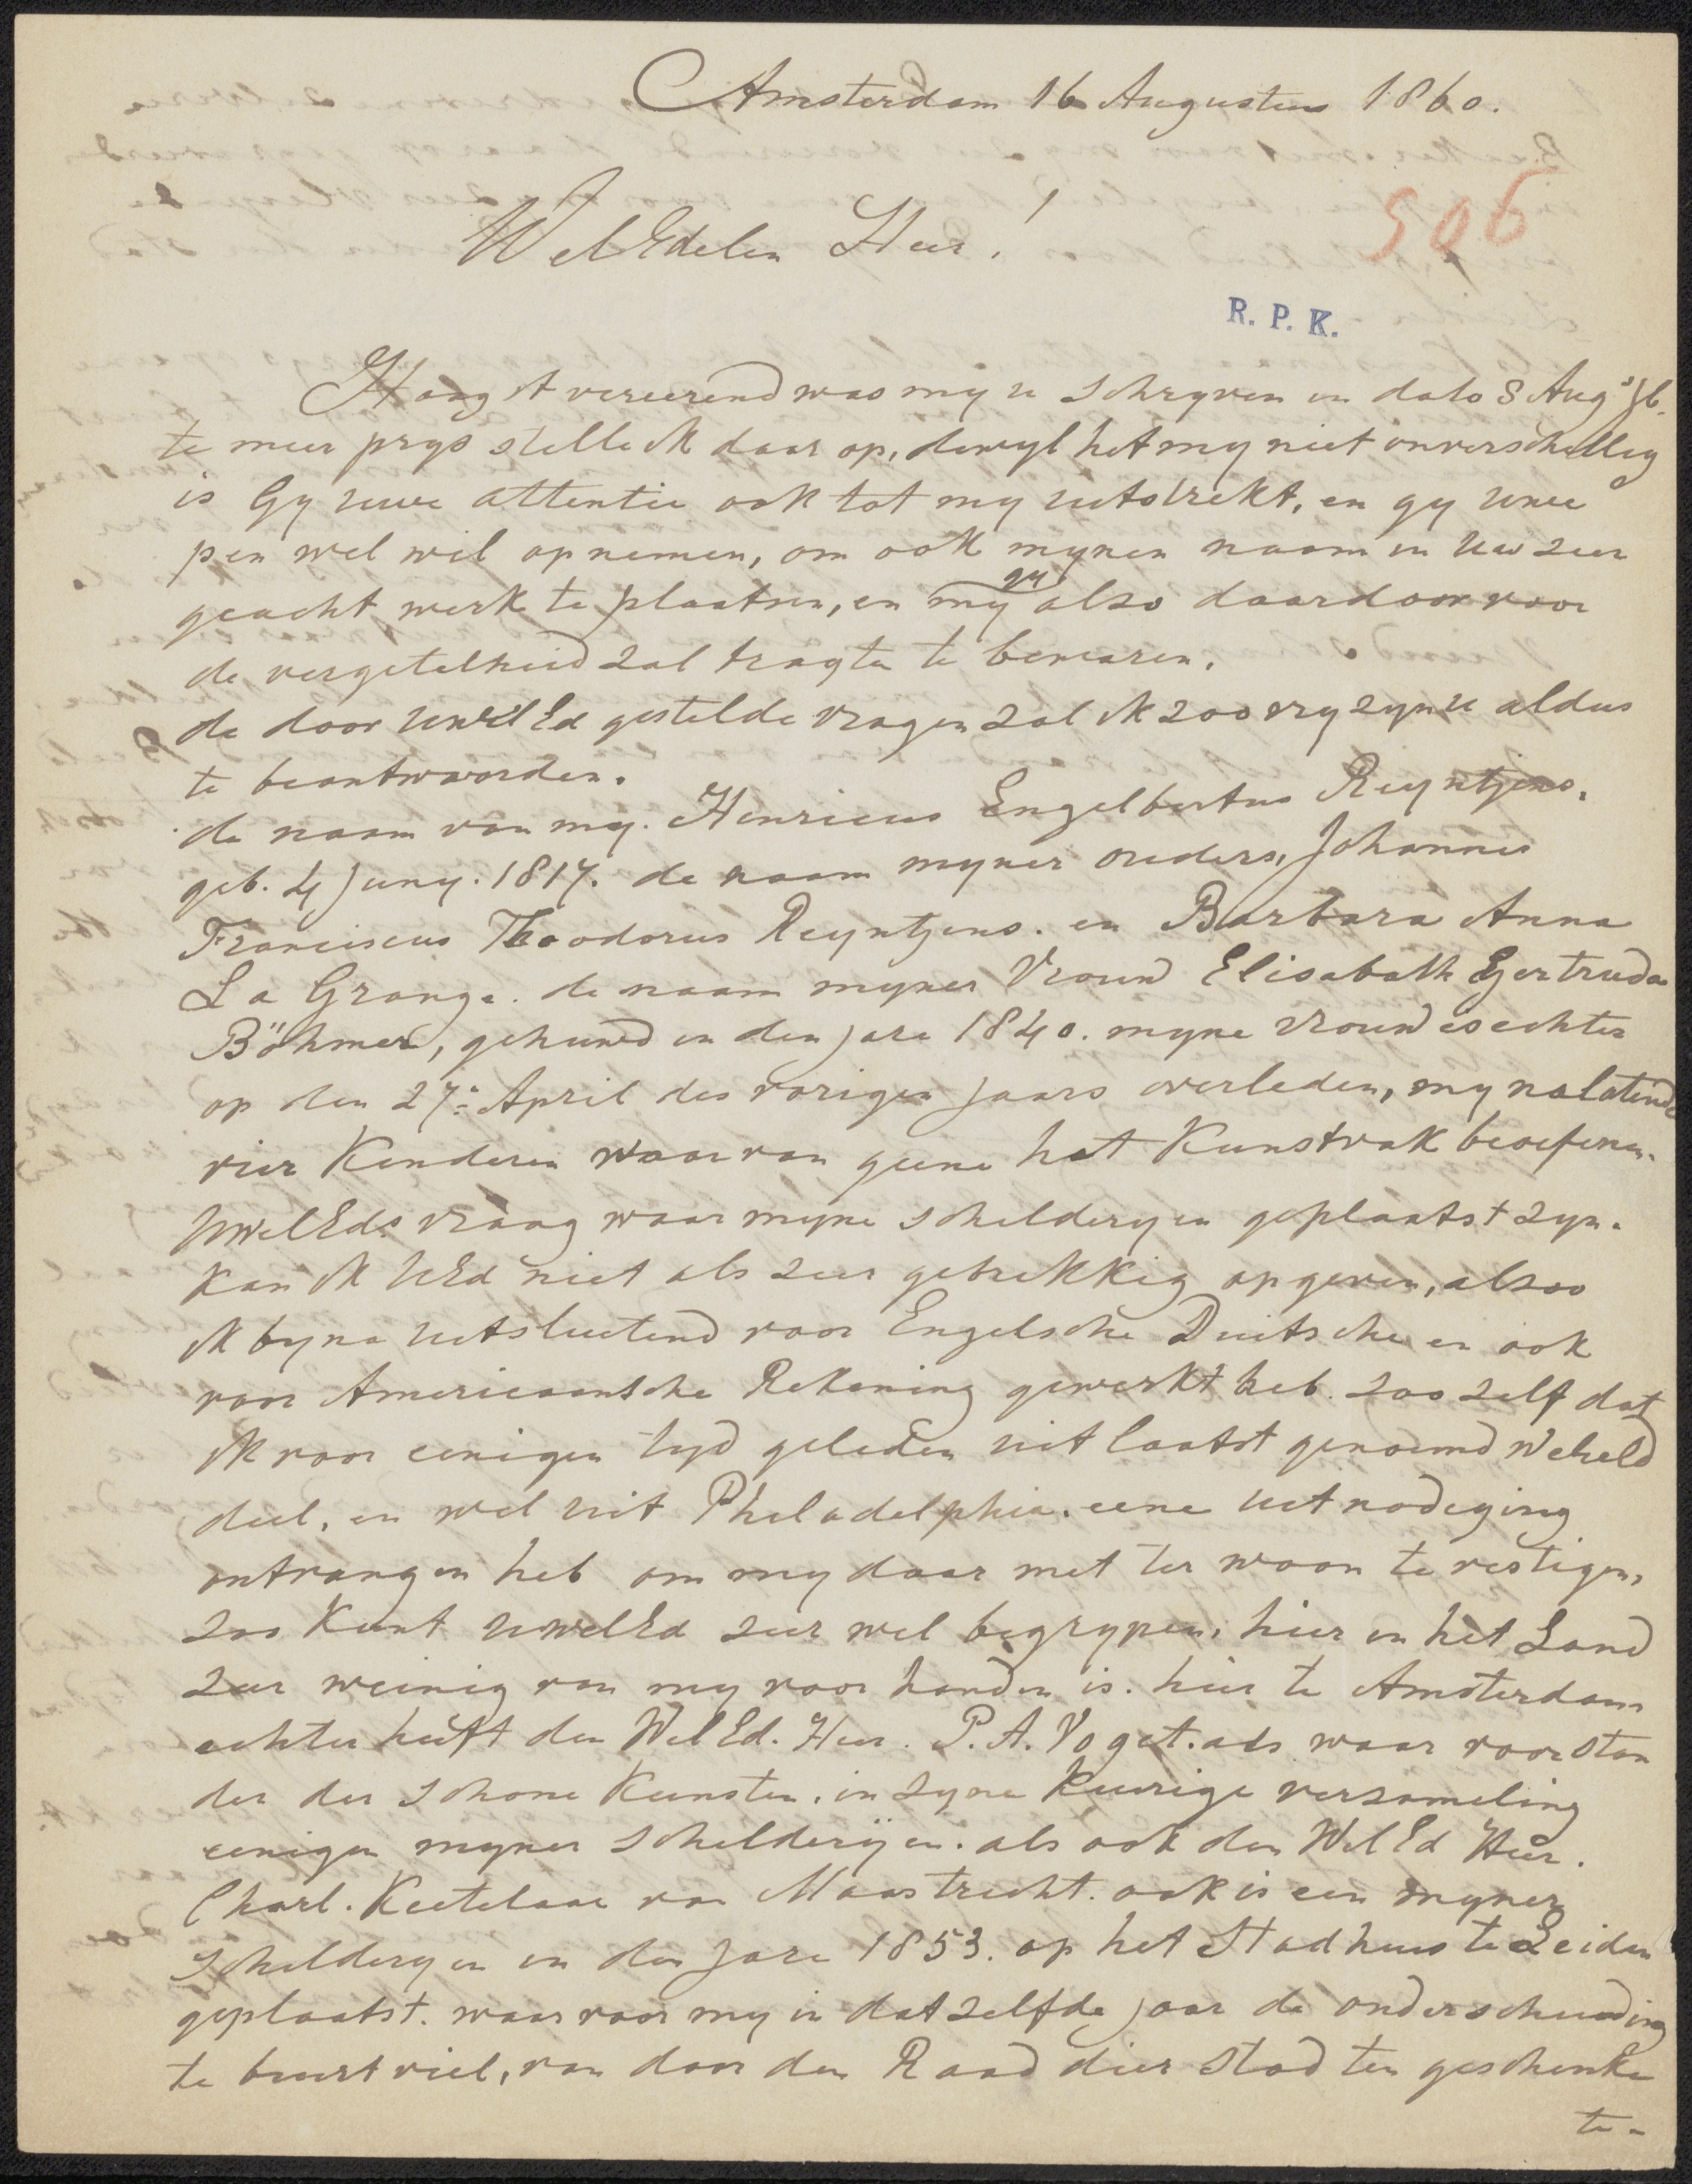 Amsterdam 16 Augustus 1860.
WelEdelen Heer!
506
R. P. K.
Hoogst vereerend was my u schryven in dato 8 Augs jl.
te meer prys stelle ik daar op, dewyl het my niet onverschillig
is Gy uwe attentie ook tot my uitstrekt, en gy uwe
pen wel wil opnemen, om ook mynen naam in uw zeer
geacht werk te plaatsen, en my gy alzo daardoor voor
de vergetelheid zal tragten te bewaren.
de door UwelEd gestelde vragen zal ik zoo vry zyn u aldus
te beantwoorden.
de naam van my. Henricus Engelbertus Reyntjens.
geb. 4 Juny. 1817. de naam myner ouders, Johannes
Franciscus Theodorus Reyntjens. en Barbara Anna
La Grange. de naam myner Vrouw Elisabath Gertruda
Böhmer, gehuwd in den jare 1840. myne vrouw is echter
op den 27e April des vorigen jaars overleden, my nalatende
vier Kinderen waarvan geene het Kunstvak beoefenen.
UwelEds vraag waar myne schilderyen geplaatst zyn.
kan ik UEd niet als zeer gebrekkig opgeven, alzoo
ik byna uitsluitend voor Engelsche Duitsche en ook
voor Americaansche Rekening gewerkt heb. zoo zelf dat
ik voor eenigen tyd geleden uit laatst genoemd Wereld
deel, en wel uit Philadelphia. eene uitnodiging
ontvangen heb om my daar met ter woon te vestigen,
zoo Kunt UwelEd zeer wel begrypen, hier in het Land
zeer weinig van my voor handen is. hier te Amsterdam
echter heeft den WelEd. Heer. P. A. Voget. als waar voorstan
der der schone Kunsten. in zyne Keurige verzameling
eenigen myner schilderijen. als ook den WelEd Heer.
Charl. Keetelaar van Maastrecht. ook is een myner
schilderyen in den jare 1853. op het Stadhuis te Leiden
geplaatst. waar voor my in dat zelfde jaar de onderscheiding
te beurt viel, van door den Raad dier stad ten geschenke
te-